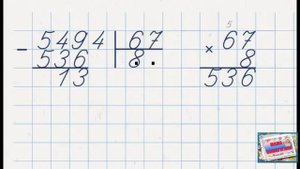 - 5494 | 67
536 | 8 . .
13
5
× 67
8
536